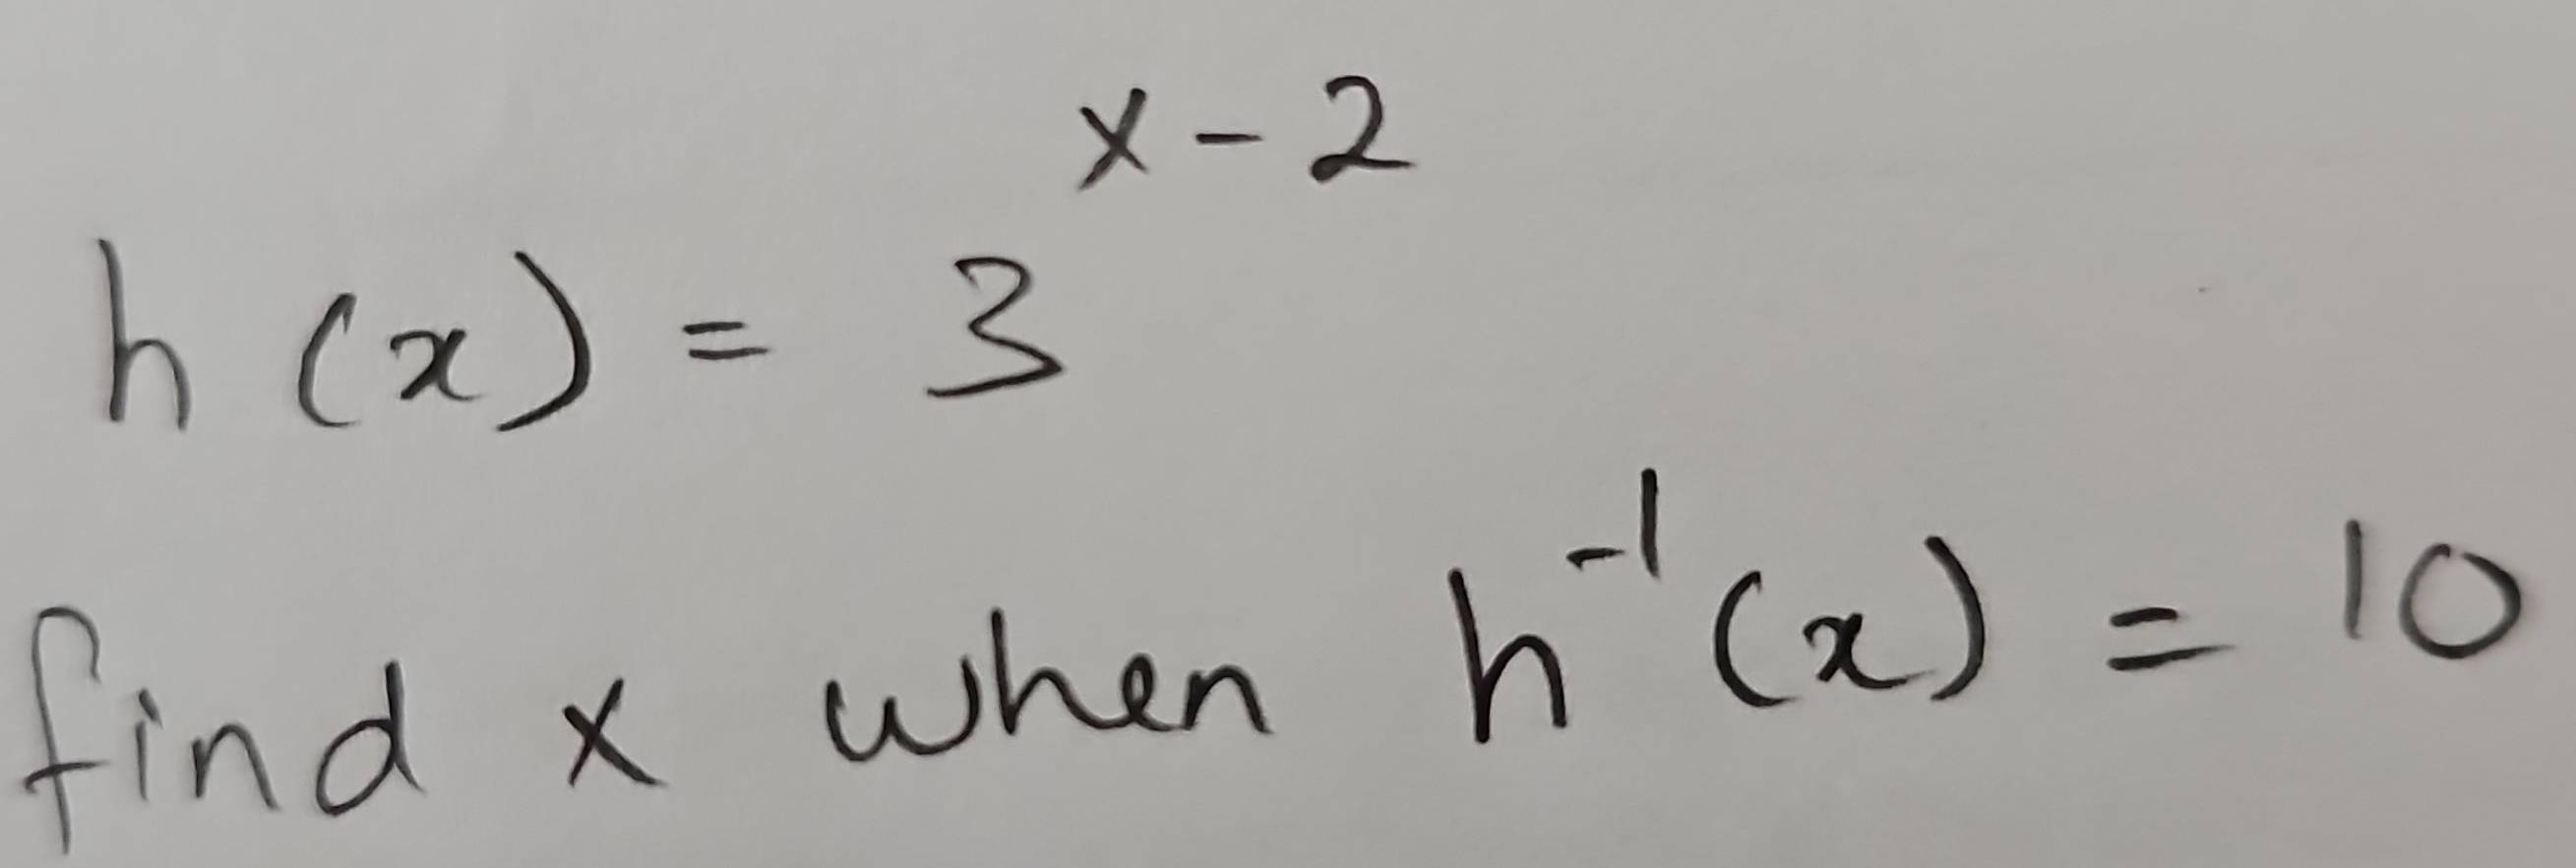 h(x) = 3^{x-2}
find x when h^{-1}(x) = 10